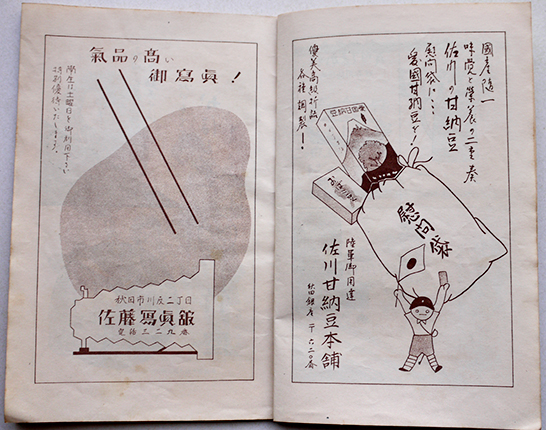 國產随一
味覚と榮養の二重奏
佐川の甘納豆
慰問袋に…
愛國甘納豆を!
優美高級折詰
各種調製!
慰問袋
陸軍御用達
佐川甘納豆本舗
氣品の高い
御寫眞!
學生は土曜日を御利用下さい
特別優待いたします。
秋田市川反二丁目
佐藤寫眞館
電話三二九番